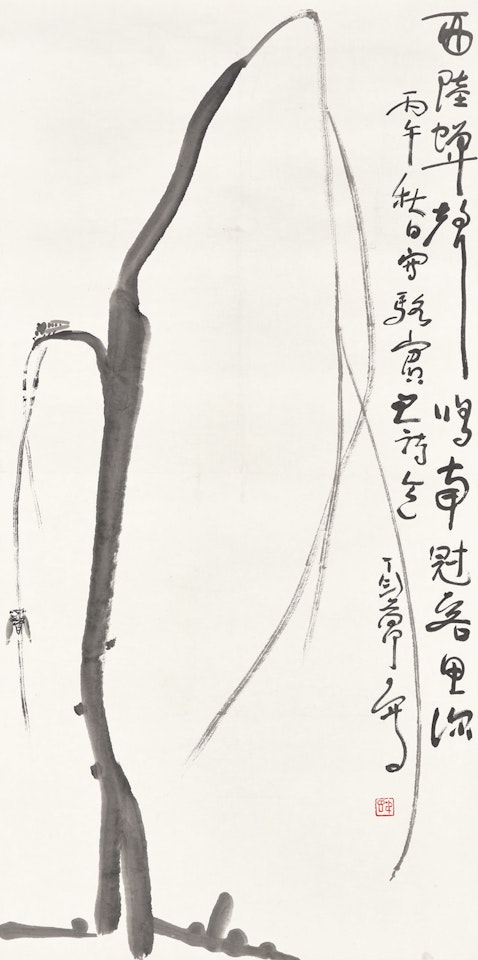 西陸蟬聲唱南冠客思深
丙午秋日寫駱賓王詩意
丁衍庸寫